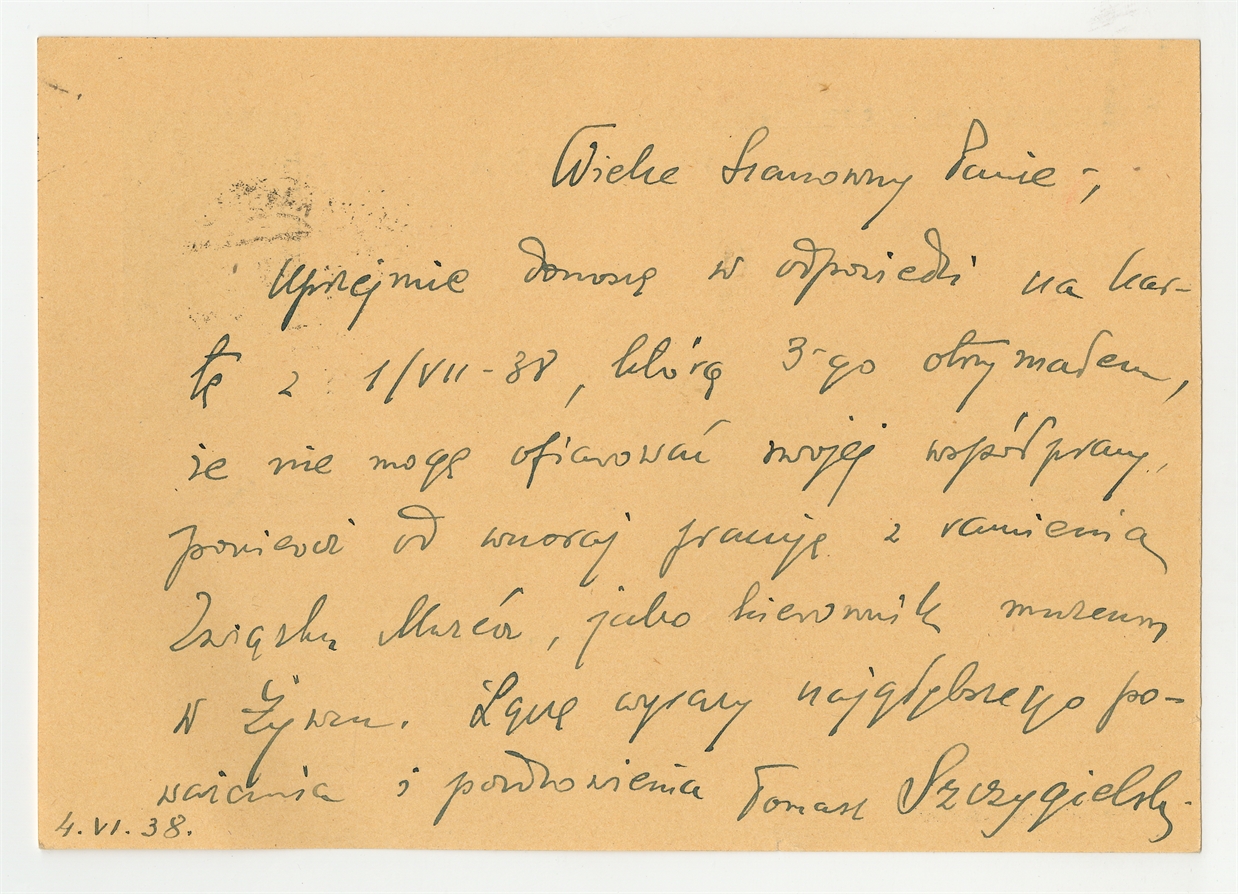 Wielce Szanowny Panie -,
Uprzejmie donoszę w odpowiedzi na kar-
tę z 1/VII-38, którą 3-go otrzymałem,
że nie mogę ofiarować swojej współpracy,
ponieważ od wczoraj pracuję z ramienia
Związku Muzeów, jako kierownik muzeum
w Żywcu. Łączę wyrazy najgłębszego po-
ważania i pozdrowienia Tomasz Szczygielski
4. VI. 38.